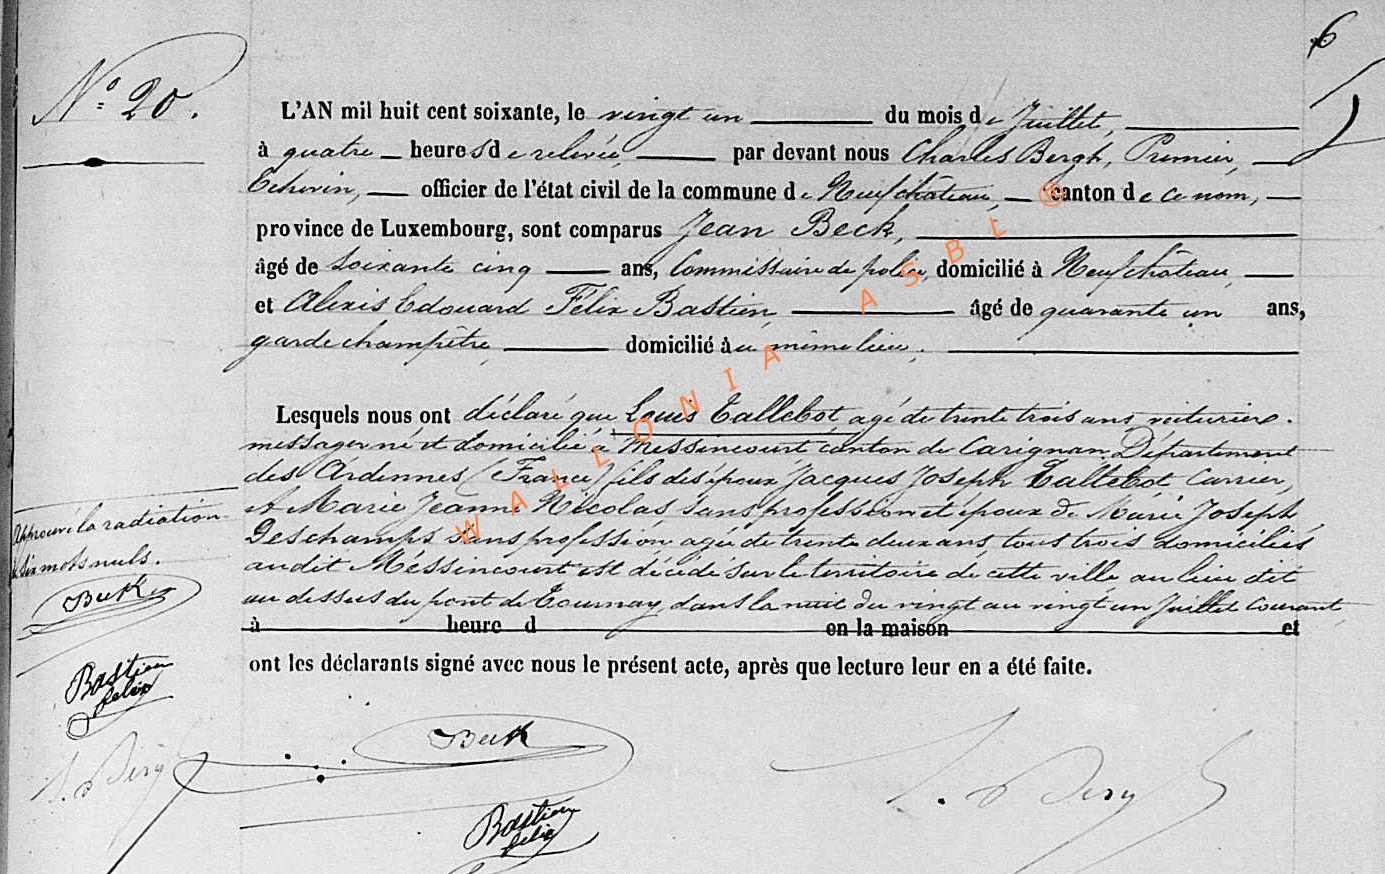 6
N° 20.
L'AN mil huit cent soixante, le vingt un du mois de Juillet,
à quatre heures de relevée, par devant nous Charles Bergh, Premier
Echevin, officier de l'état civil de la commune de Neufchâteau, canton de ce nom,
province de Luxembourg, sont comparus Jean Beck,
âgé de soixante cinq ans, Commissaire de police, domicilié à Neufchâteau,
et Alexis Edouard Félix Bastien, âgé de quarante un ans,
garde champêtre, domicilié au même lieu,
Lesquels nous ont déclaré que Louis Tallebot, agé de trente trois ans, voiturier.
messager né et domicilié à Messincourt canton de Carignan Département
des Ardennes (France) fils des époux Jacques Joseph Tallebot Carrier,
et Marie Jeanne Nicolas, sans profession et époux de Marie Joseph
Deschamps sans profession, agée de trente deux ans, tous trois domiciliés
audit Messincourt est décédé sur le territoire de cette ville au lieu dit
au dessus du pont de Tournay, dans la nuit du vingt au vingt un Juillet courant
à heure d en la maison et
ont les déclarants signé avec nous le présent acte, après que lecture leur en a été faite.
Approuvé la radiation
de six mots nuls.
Beck
Bastien
felix
Beck
Bastien
felix
WALLONIA ASBL ®